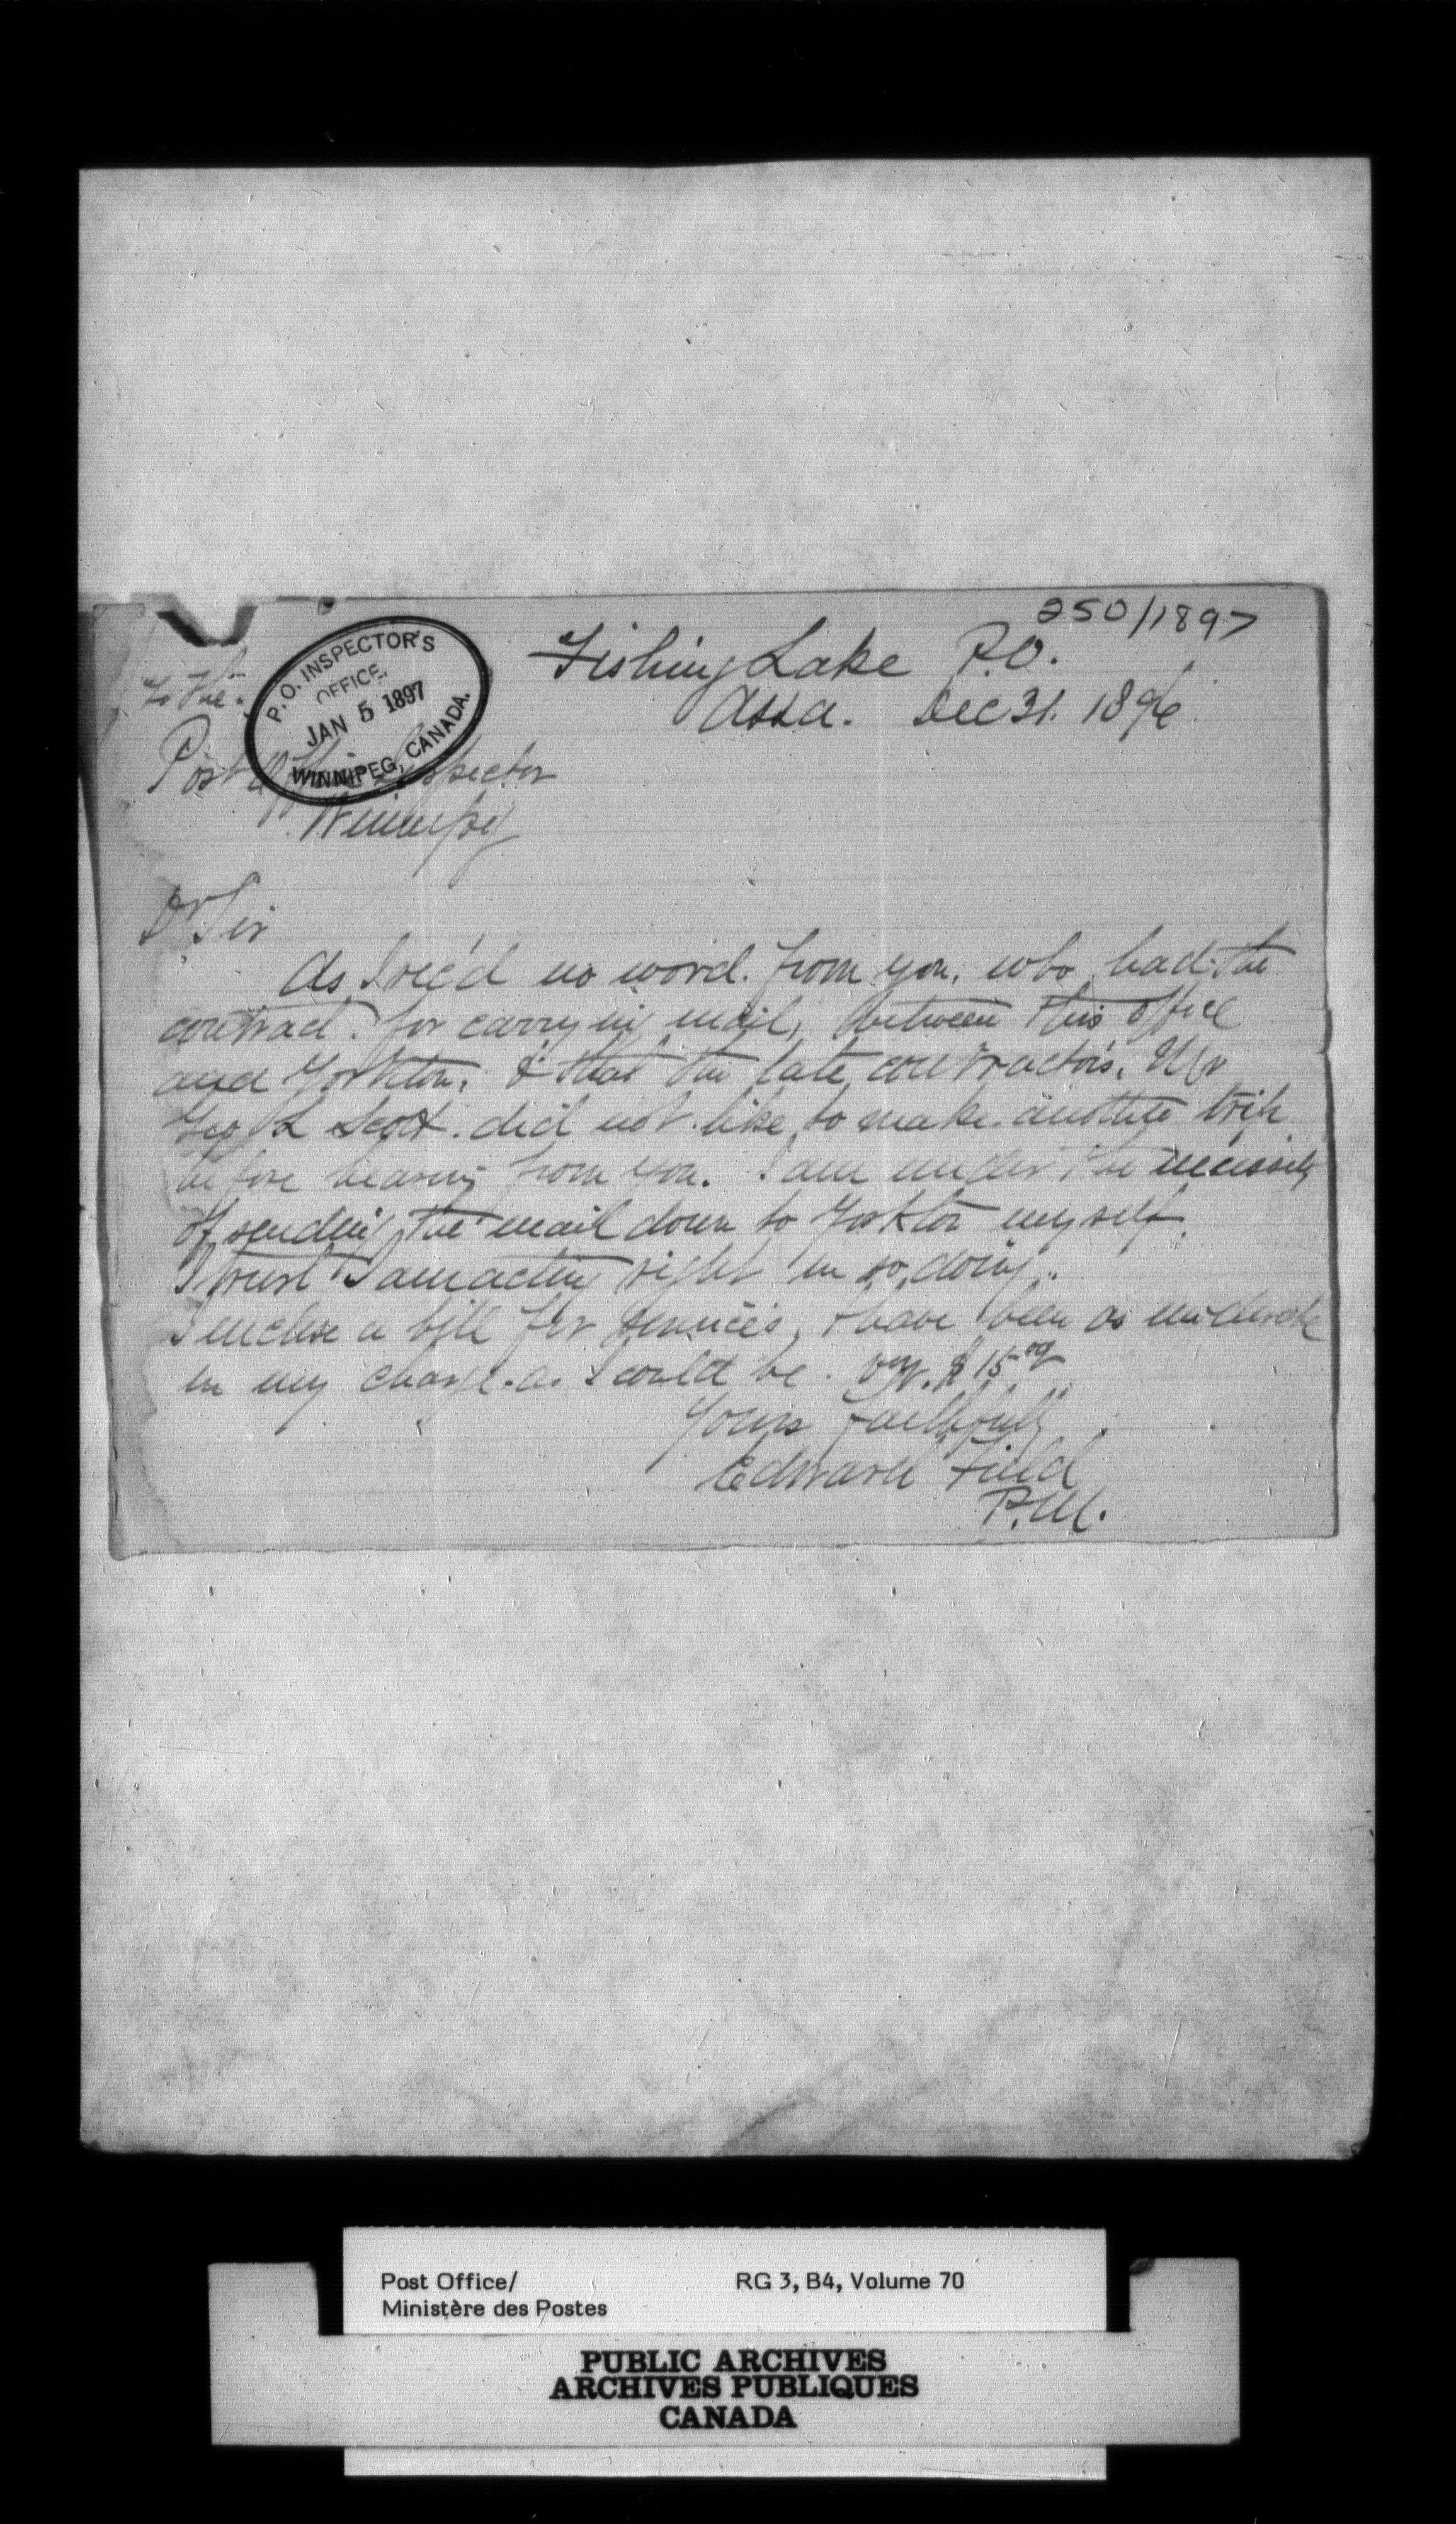 250/1897
Fishing Lake P.O.
Assa. Dec 31. 1896
P.O. INSPECTOR'S
OFFICE,
JAN 5 1897
WINNIPEG, CANADA.
To the
Post Office Inspector
Winnipeg
Dr Sir
As I rec'd no word from you, who had the
contract for carrying mail, between this office
and Yorkton, & that the late contractor's, Mr
Geo L Scott did not like to make another trip
before hearing from you. I am under the necessity
of sending the mail down to Yorkton myself.
I trust I am acting right in so doing.
I enclose a bill for services, & have been as moderate
in my charge as I could be. $15.00
Yours faithfully
Edward Field
P.M.
Post Office/
Ministère des Postes
RG 3, B4, Volume 70
PUBLIC ARCHIVES
ARCHIVES PUBLIQUES
CANADA